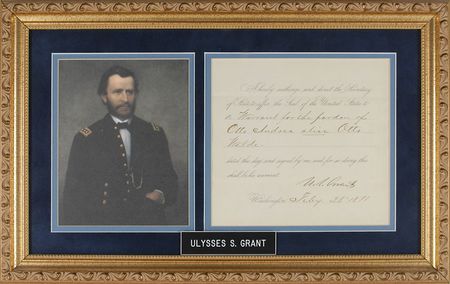 I hereby authorize and direct the Secretary
of State to affix the Seal of the United States to
a Warrant for the pardon of
Otto alias Otto
dated this day and signed by me and for so doing this
shall be his warrant.
U.S. Grant
Washington, 1871
ULYSSES S. GRANT